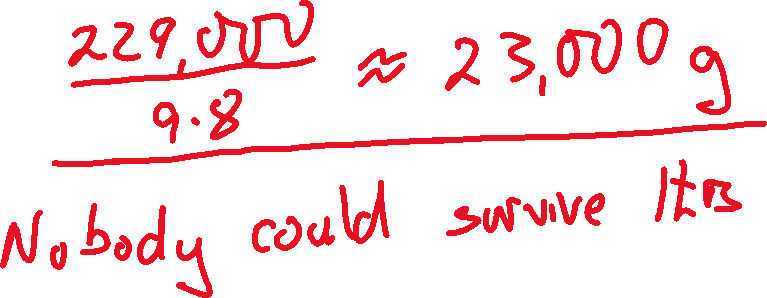 229,000
9.8
≈ 23,000 g
Nobody could survive this